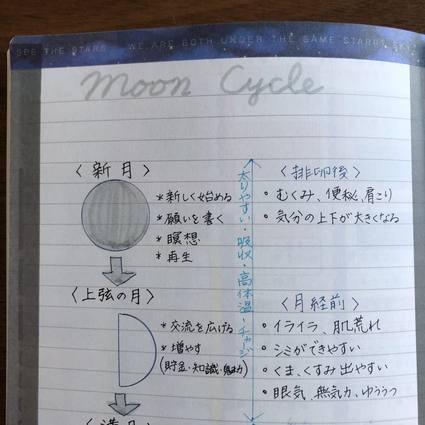 SEE THE STARS WE ARE BOTH UNDER THE SAME STARRY SKY
Moon Cycle
〈新月〉
*新しく始める
*願いを書く
*瞑想
*再生
〈上弦の月〉
*交流を広げる
*増やす
(貯金・知識・魅力)
太りやすい・吸収・高体温・チャージ
〈排卵後〉
・むくみ、便秘、肩こり
・気分の上下が大きくなる
〈月経前〉
・イライラ、肌荒れ
・シミができやすい
・くま、くすみ出やすい
・眠気、無気力、ゆううつ